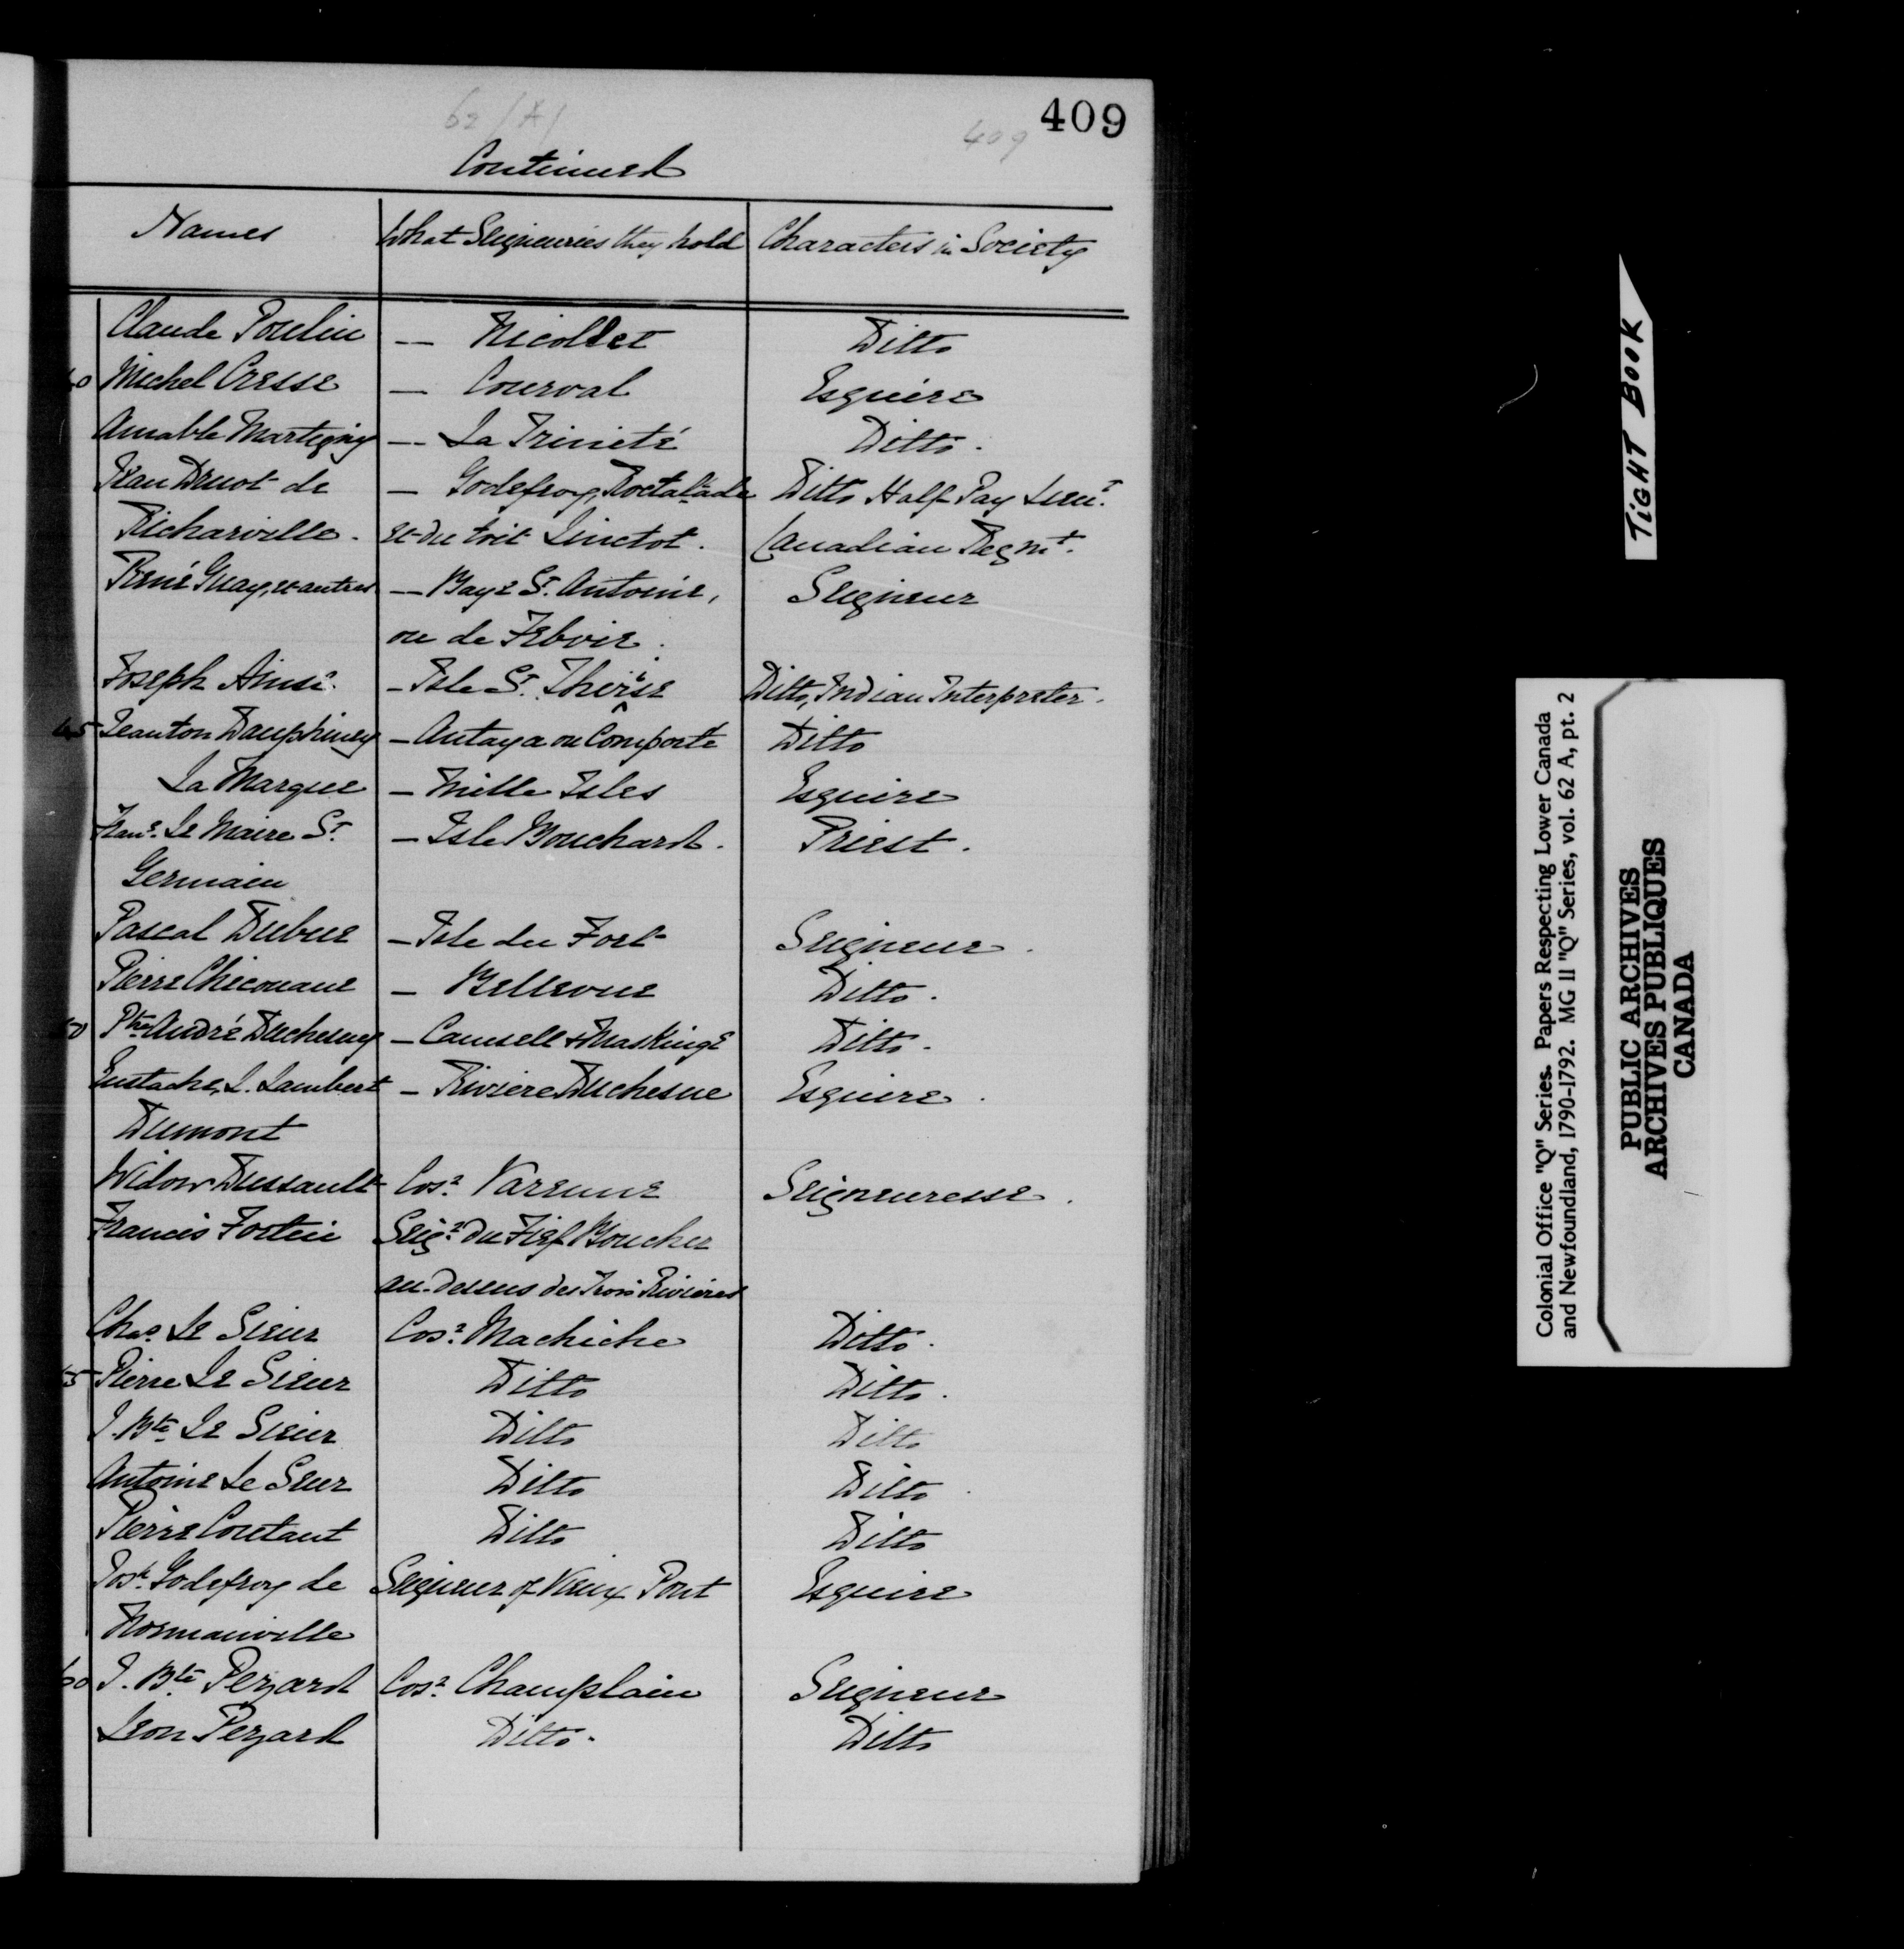 409
62/A/
409
Continued
Names | What Seigneuries they hold | Characters in Society
Claude Poulin | — Nicollet | Ditto
40 Michel Cresse | — Courval | Esquire
Amable Martigny | — La Trinité | Ditto.
Jean Druot de | — Godefroy, Roctalade | Ditto Half Pay Lieut.
Richarville. | et du toit Linctot. | Canadian Regmt.
René Guay, et autres | — Baye St. Antoine, | Seigneur
ou de Febvre.
Joseph Ainse. | — Isle St. Therèse | Ditto, Indian Interpreter.
45 Jeanton Dauphiney | — Antaya ou Comporte | Ditto
La Marque | — Mille Isles | Esquire
Frans. Le Maire St. | — Isle Bouchard. | Priest.
Germain
Pascal Dubue | — Isle du Fort | Seigneur.
Pierre Chicouane | — Bellevue | Ditto.
50 Pre André Duchesney | — Camsell & Maskingé | Ditto.
Eustache, L. Lambert | — Riviere Duchesne | Esquire.
Dumont
Widow Dussault | Cosr. Varenne | Seigneuresse.
Francis Fortin | Seigr. du Fief Boucher
au-dessus des Trois Rivieres
Chas. Le Sieur | Cosr. Machiche | Ditto.
55 Pierre Le Sieur | Ditto | Ditto.
J. Bte. Le Sieur | Ditto | Ditto
Antoine Le Seur | Ditto | Ditto.
Pierre Coutant | Ditto | Ditto
Josh. Godefroy de | Seigneur of Vieux Pont | Esquire
Normanville
60 J. Bte. Pezard | Cosr. Champlain | Seigneur
Leon Pezard | Ditto. | Ditto
TIGHT BOOK
Colonial Office "Q" Series. Papers Respecting Lower Canada
and Newfoundland, 1790-1792. MG 11 "Q" Series, vol. 62 A, pt. 2
PUBLIC ARCHIVES
ARCHIVES PUBLIQUES
CANADA